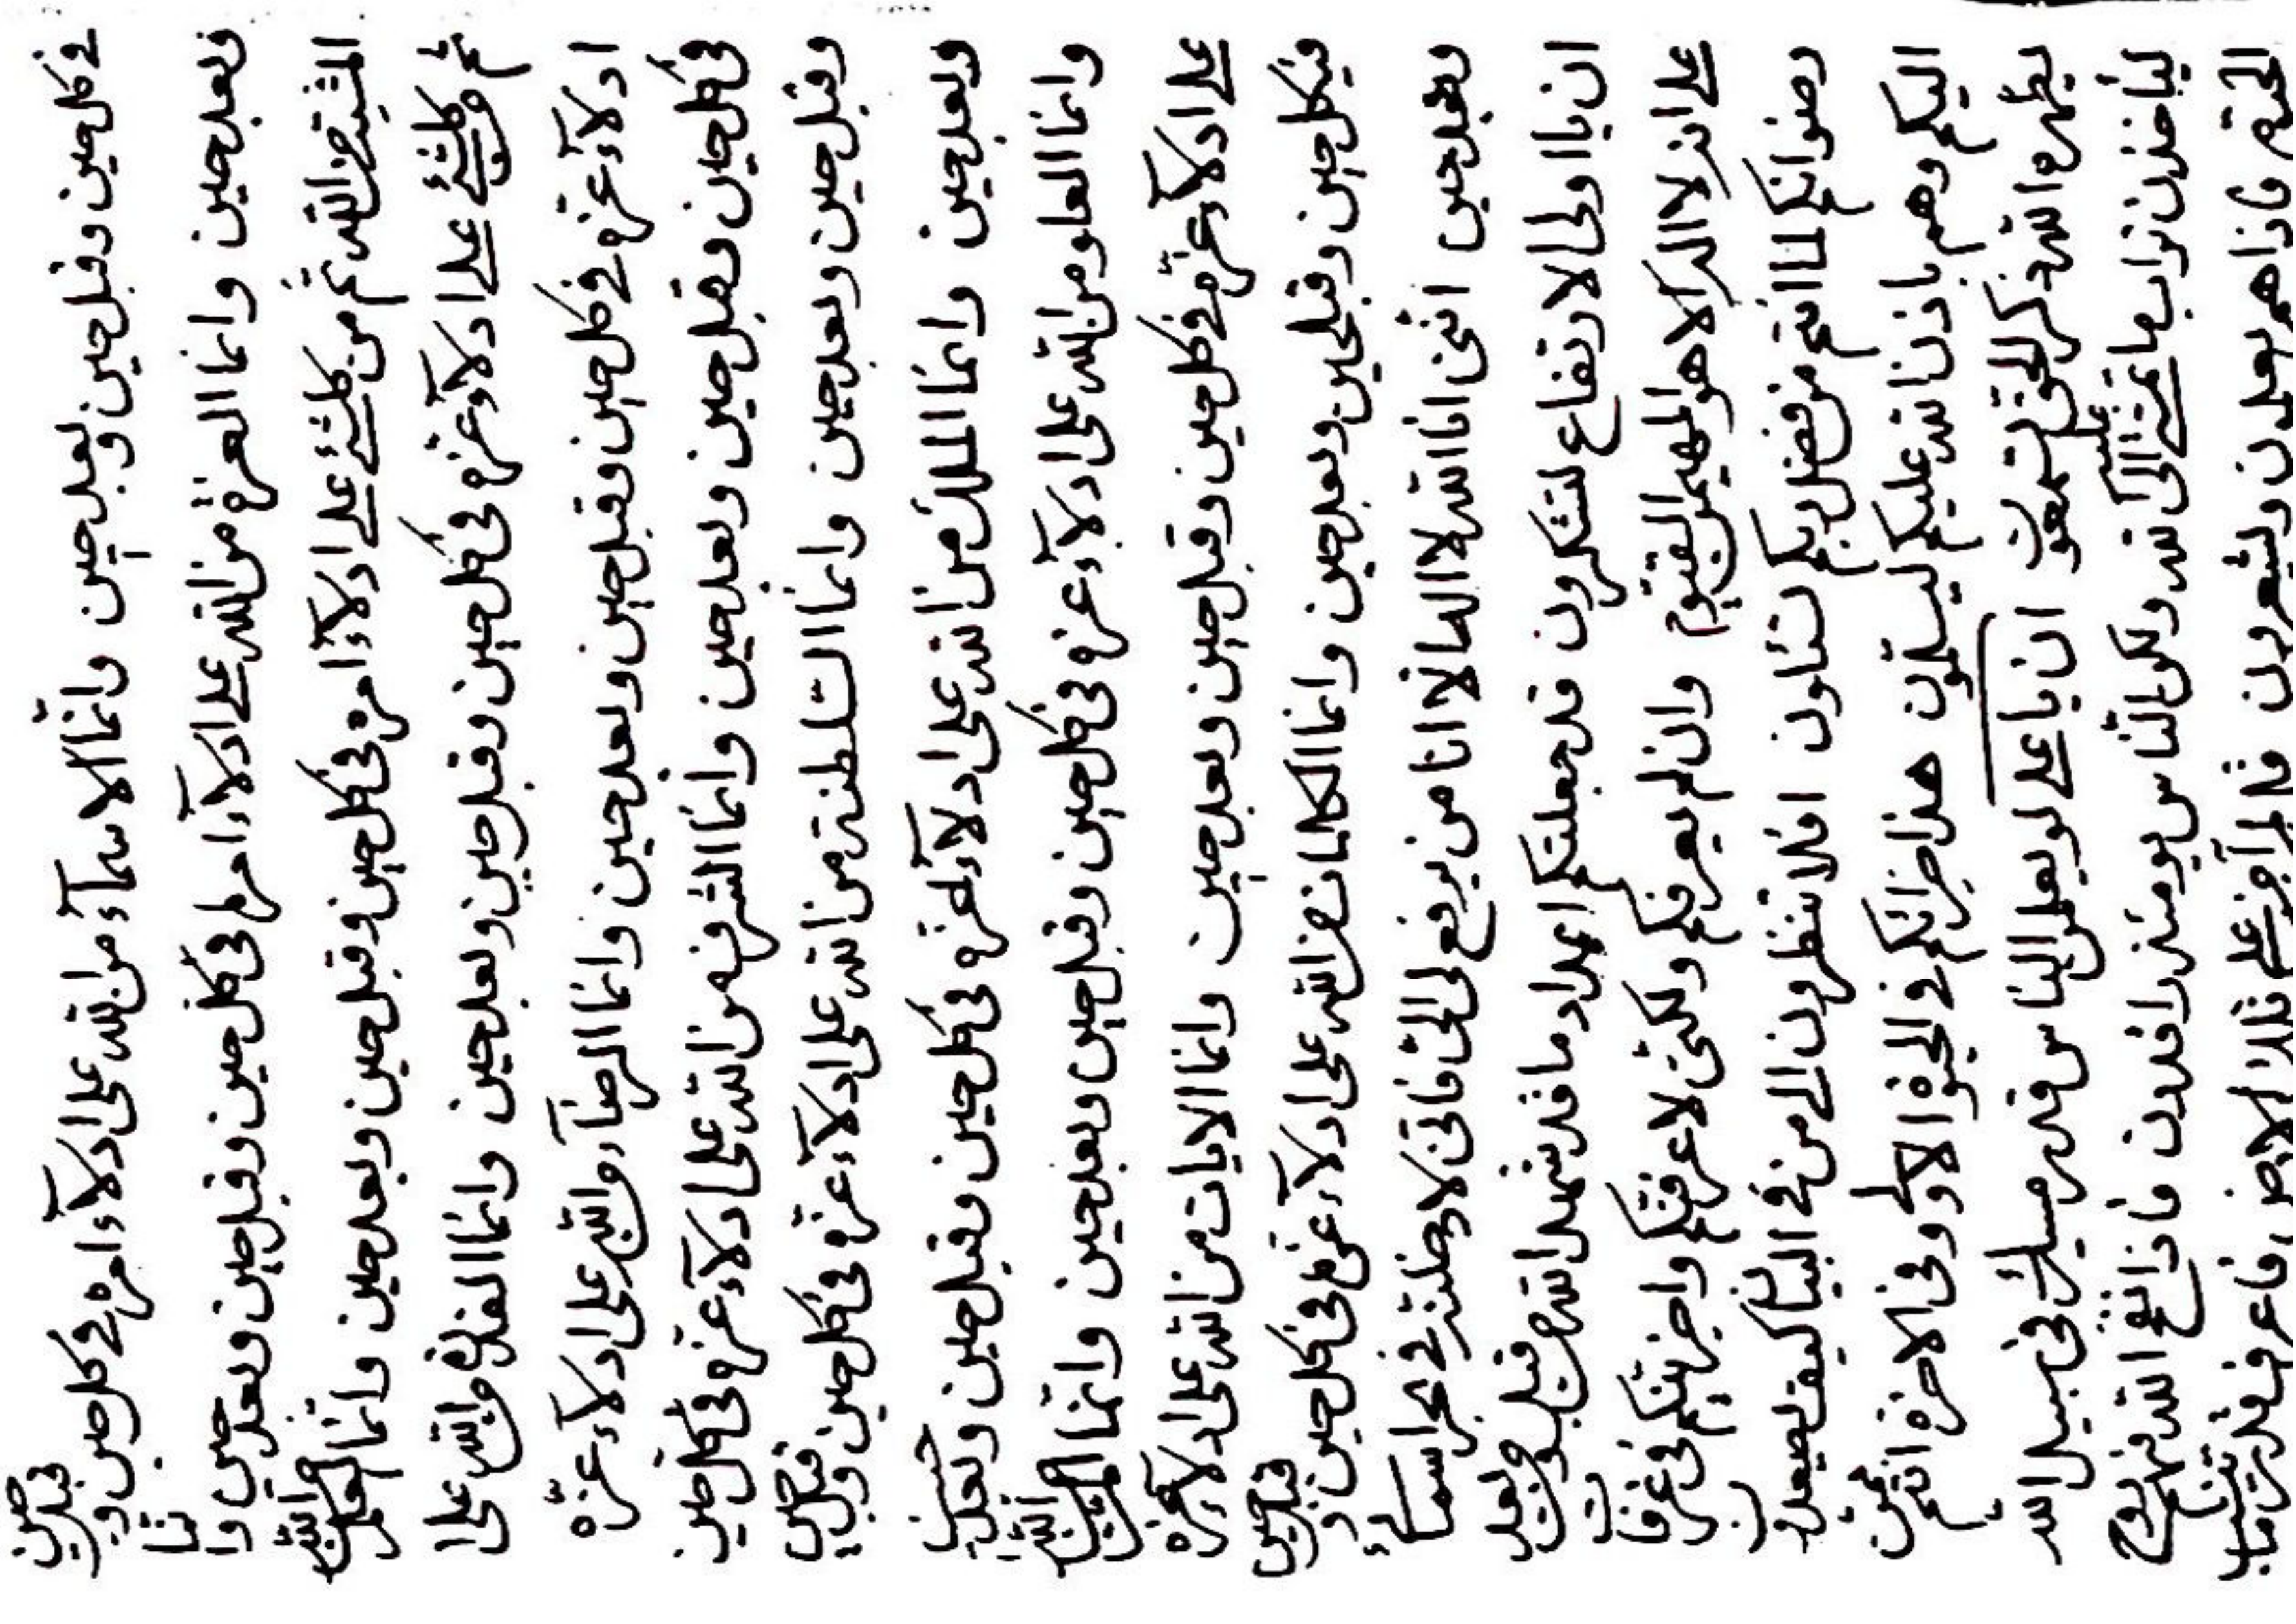 في كل حين وقبل حين وبعد حين وانما الاسماء من الله على ادلاء امره في كل حين و قبل حين
وبعد حين وانما العزة من الله على ادلاء امره في كل حين وقبل حين وبعد حين وانما
المشية من الله ثم من كلشيء على ادلاء امره في كل حين وقبل حين وبعد حين وانما العلم من الله
ثم كلشيء على ادلاء عزه في كل حين وقبل حين وبعد حين وانما القدرة من الله على
ادلاء عزه في كل حين وقبل حين وبعد حين وانما الرضاء والله على ادلاء عزه
في كل حين وقبل حين وبعد حين وانما الشرف من الله على ادلاء عزه في كل حين
وقبل حين وبعد حين وانما السلطنة من الله على ادلاء عزه في كل حين وقبل حين
وبعد حين وانما الملك من الله على ادلاء عزه في كل حين وقبل حين وبعد حين
وانما العلو من الله على ادلاء عزه في كل حين وقبل حين وبعد حين وانما من الله
على ادلاء عزه في كل حين وقبل حين وبعد حين وانما الايات من الله على ادلاء عزه
في كل حين وقبل حين وبعد حين وانما الكلمات من الله على ادلاء عزه في كل حين و قبل حين
وبعد حين انني انا الله لا اله الا انا من يرفع الى فانني لادخلنه في بحر اسمائي
ان يا اولى الارتفاع لتشكرون قد جعلتكم اعداد ما قد شهد الله من قبل ومن بعد
على انه لا اله الا هو المهيمن القيوم وان لم يعرفكم ولكني لاعرفنكم واجزينكم في غرفات
رضوانكم لما انتم من فضل ربكم تسئلون افلا تنظرون الى من في البيان كيف يصعدون
اليكم وهم باذن الله عليكم ليسلمون هذا جزائكم في الحيوة الاولى وفي الاخرة انتم
يظهره الله ذكر الحق تسمعون ان يا على لو يعلم الناس قدر مسيلك في سبيل الله
ليأخذن تراب ما تمشي عليه الى الله ولكن الناس يومئذ راقدون فاذا نفخ الله فيهم روح
فاذا هم يعلمون ويشعرون على تلك الارض فاعرف قدر ما